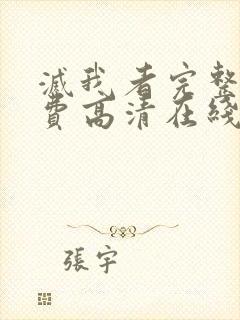 滅我看完整
費高清在綫
張宇